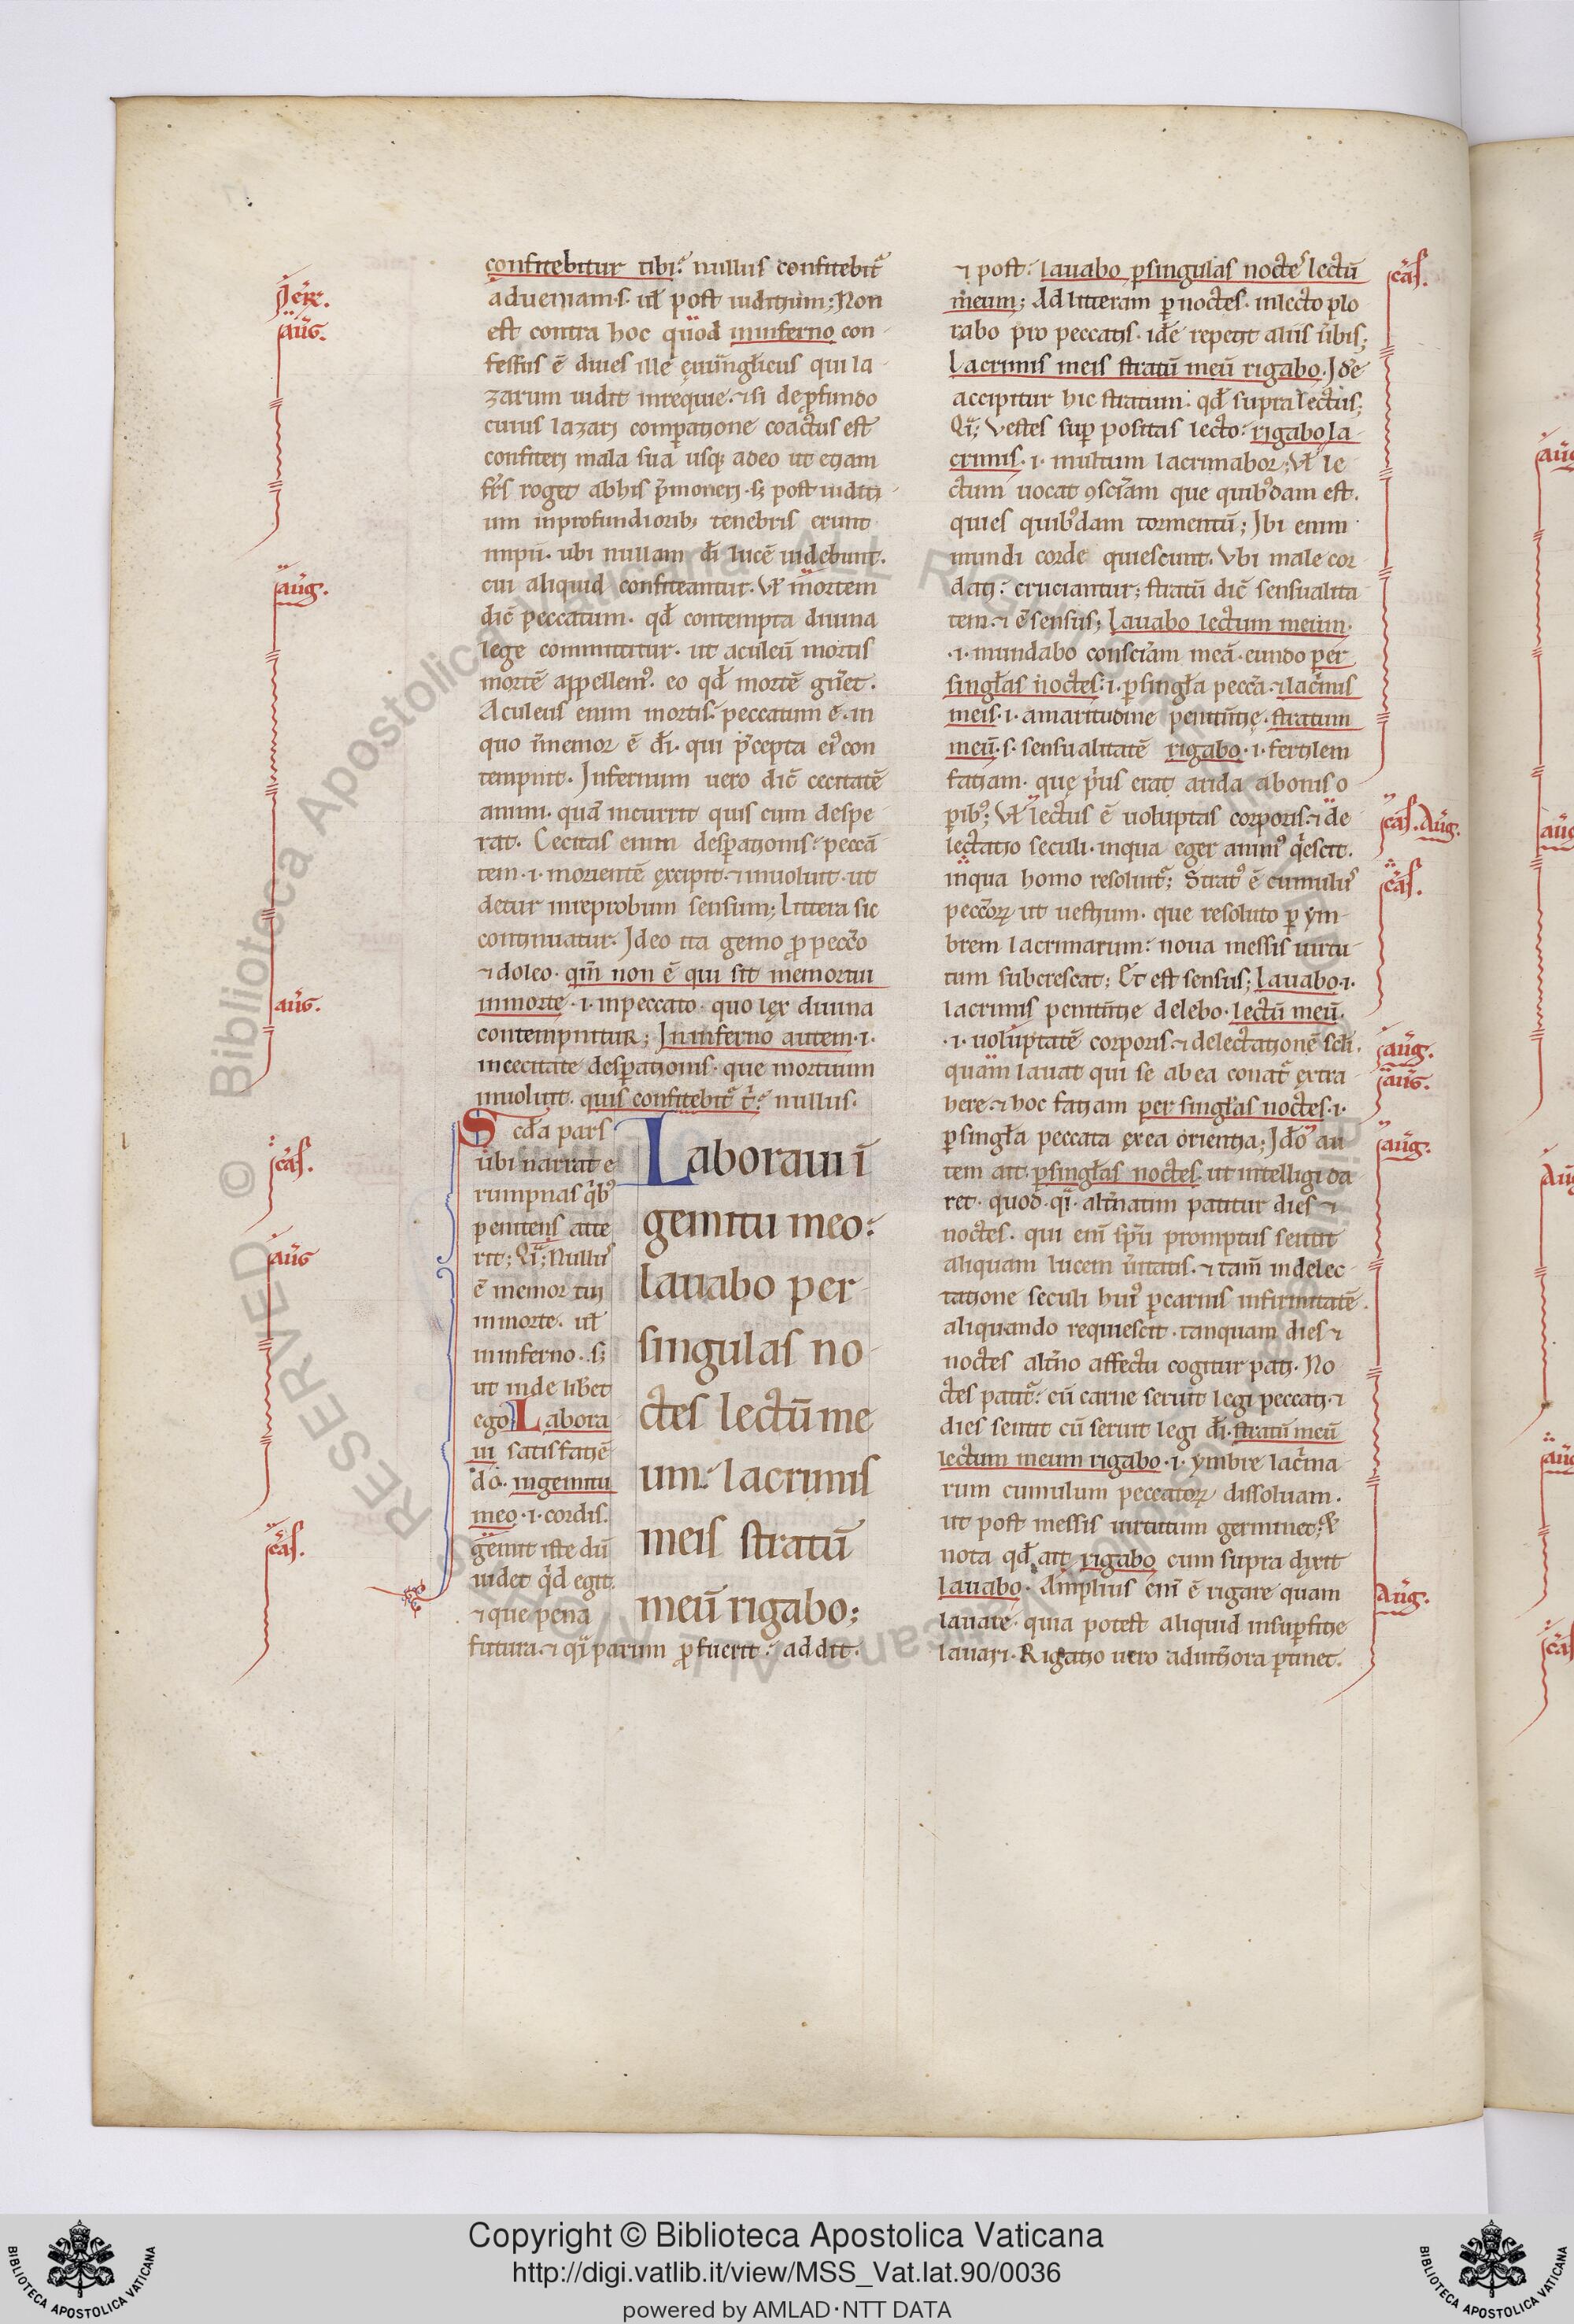 confitebitur tibi. nullus confitebit̄
ad ueniam .s. ul̄ post iuditium; Non
est contra hoc quod in inferno con-
fessus ē diues ille euūgl̄icus qui la-
zarum uidit in requie. ⁊ si de ꝓfundo
cuius lazari comꝑatione coactus est
confiteri mala sua usq; adeo ut etiam
fr̄s roget ab his p̄moneri. sꝫ post iuditi-
um in profundiorib; tenebris erunt
impii. ubi nullam dī lucē uidebunt.
cui aliquid confiteantur. Vl̄ mortem
dic̄ peccatum. qd̄ contempta diuina
lege committitur. ut aculeū mortis
mortē appellem᾽. eo qd̄ mortē gn̄et.
Aculeus enim mortis peccatum ē. in
quo īmemor ē dī. qui p̄cepta ei᾽ con
tempnit. Infernum uero dic̄ cecitatē
animi. quā incurrit quis cum despe-
rat. Cecitas enim desꝑationis peccā
tem .i. morientē excipit. ⁊ inuoluit. ut
detur in reprobum sensum; Littera sic
continuatur. Ideo ita gemo ꝓ pecc̄o
⁊ doleo. qm̄ non ē qui sit memor tui
in morte .i. in peccato. quo lex diuina
contempnitur; In inferno autem .i.
in cecitate desꝑationis. que mortuum
inuoluit. quis confitebit̄ t̄. nullus.
Scd̄a pars
ubi narrat e
rumpnas qͥb᾽
penitens atte
rit; Qͣ; Nullus
ē memor tui
in morte. ul̄
in inferno. sꝫ
ut inde libet
ego Labora
ui satisfatiē
do. in gemitu
meo .i. cordis.
gemit iste dū
uidet qͥd egit.
⁊ que pena
futura. ⁊ qͣ parum ꝓfuerit. addit.
Laboraui ī
gemitu meo:
lauabo per
singulas no-
ctes lectū me
um: lacrimis
meis stratū
meū rigabo;
⁊ post. lauabo ꝑ singulas noctes lectū
meum; Ad litteram ꝑ noctes. in lecto plo
rabo pro peccatis. idē repetit aliis ūbis;
Lacrimis meis stratū meū rigabo. Idē
accipitur hic stratum qd̄ supra lectus;
Qͣ; Vestes suꝑ positas lecto. rigabo la-
crimis .i. multum lacrimabor; Vl̄ le-
ctum uocat ꝯsciām que quib᾽dam est.
quies quib᾽dam tormentū; Ibi enim
mundi corde quiescunt. Vbi male cor
dati cruciantur; stratū dic̄ sensualita
tem. ⁊ ē sensus; Lauabo lectum meum
.i. mundabo consciām meā. eundo per
singl̄as noctes .i. ꝑ singl̄a pecc̄a. ⁊ lac̄mis
meis .i. amaritudine penitn̄tie. stratum
meū .s. sensualitatē rigabo .i. fertilem
fatiam. que p̄us erat arida a bonis o
pib᾽; Vl̄ lectus ē uoluptas corporis. ⁊ de
lectatio seculi. in qua eger anim᾽ qͥescit.
in qua homo resoluit̄; Strat᾽ ē cumulus
pecc̄oꝝ ut uestium. que resoluto ꝑ ym-
brem lacrimarum noua messis uirtu-
tum subcrescat; Et est sensus; Lauabo .i.
lacrimis penitn̄tie delebo. lectū meū.
.i. uoluptatē corporis. ⁊ delectationē scl̄i.
quam lauat qui se ab ea conat̄ extra-
here. ⁊ hoc fatiam per singl̄as noctes .i.
ꝑ singl̄a peccata ex ea orientia; Id̄o au
tem ait ꝑ singl̄as noctes. ut intelligi da
ret. quod qͣ. alt̄natim patitur dies ⁊
noctes. qui enī spū promptus sentit
aliquam lucem ūitatis. ⁊ tam̄ in delec-
tatione seculi hui᾽ ꝑ carnis infirmitatē.
aliquando requiescit. tanquam dies ⁊
noctes alt̄no affectu cogitur pati. No
ctes patit̄. cū carne seruit legi peccati. ⁊
dies sentit cū seruit legi dī. stratū meū
lectum meum rigabo .i. ymbre lac̄ima
rum cumulum peccatoꝝ dissoluam.
ut post messis uirtutum germinet; ⁊
nota qd̄ ait rigabo cum supra dixit
Lauabo. Amplius enī ē rigare quam
lauare. quia potest aliquid in suꝑfitie
lauari. Rigatio uero ad int̄iora ꝑtinet.
Ier̄.
aūg.
aūg.
aūg.
cās.
aūg
cās.
cās.
cās. Aūg.
cās.
aūg.
aūg.
aūg.
Aūg.
© Biblioteca Apostolica Vaticana ALL RIGHTS RESERVED
Copyright © Biblioteca Apostolica Vaticana
http://digi.vatlib.it/view/MSS_Vat.lat.90/0036
powered by AMLAD·NTT DATA
BIBLIOTECA APOSTOLICA VATICANA
BIBLIOTECA APOSTOLICA VATICANA